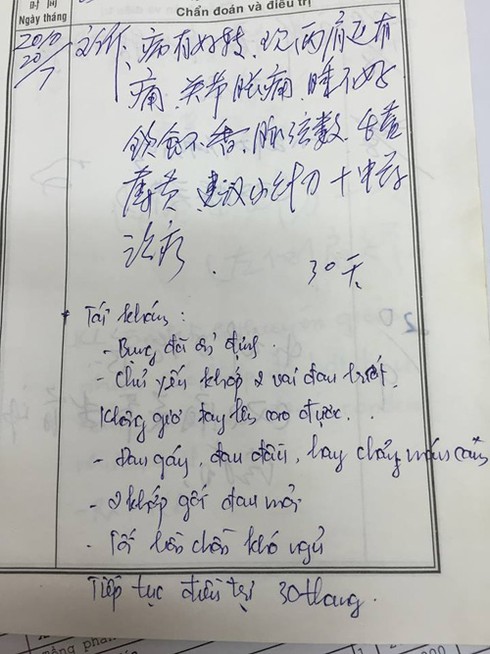 时间
Ngày tháng
Chẩn đoán và điều trị
2020
20/7
病有好转, 现两肩还有
痛, 关节胀痛, 睡不好
饮食不香, 脉弦数, 舌
黄, 建议小针刀 + 中药
治疗. 30天
* Tái khám:
- Bụng đã ổn định.
- Chủ yếu khớp 2 vai đau
Không giơ tay lên cao được.
- Đau gáy, đau đầu, hay chảy máu cam
- 2 khớp gối đau mỏi
- Tối bồn chồn khó ngủ
Tiếp tục điều trị 30 thang.